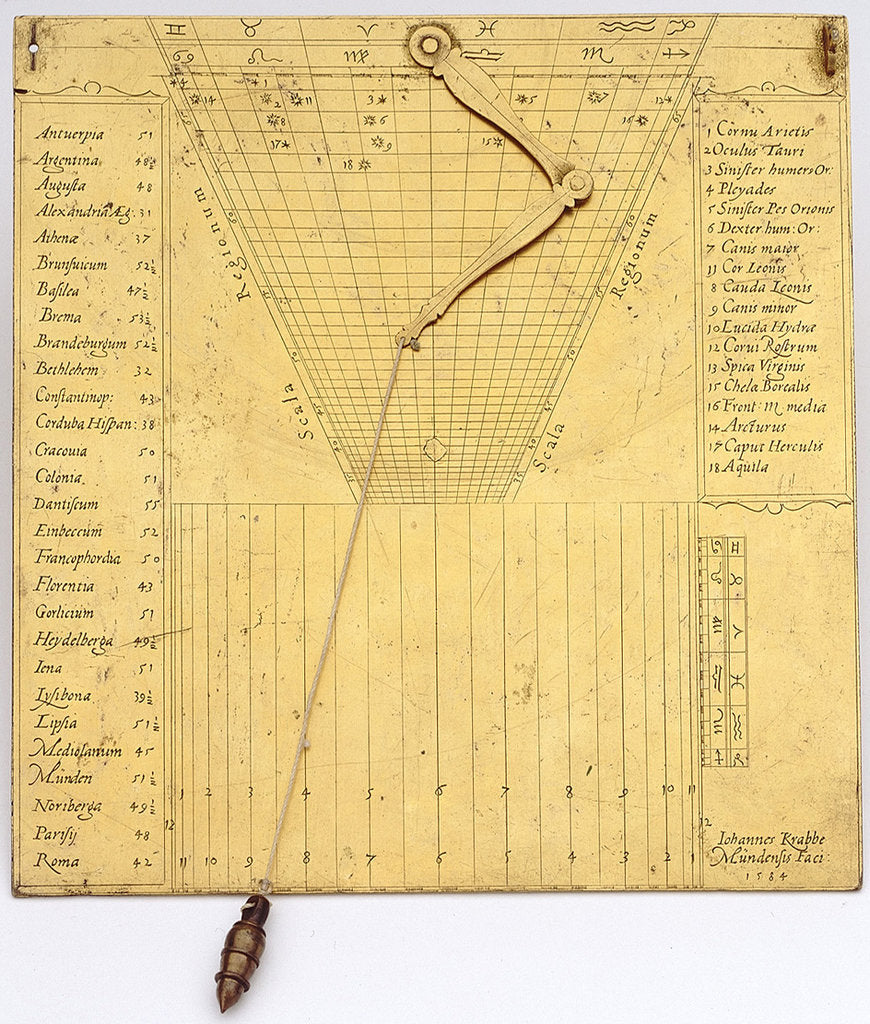 Antuerpia 51
Argentina 48½
Augusta 48
Alexandria Æg. 31
Athenæ 37
Brunsuicum 52½
Basilea 47½
Brema 53½
Brandeburgum 52½
Bethlehem 32
Constantinop: 43
Corduba Hispan: 38
Cracouia 50
Colonia 51
Dantiscum 55
Einbeccum 52
Francophordia 50
Florentia 43
Gorlicium 51
Heydelberga 49½
Iena 51
Lysibona 39½
Lipsia 51½
Mediolanum 45
Münden 51½
Noriberga 49½
Parisÿ 48
Roma 42
♊ ♉ ♈ ♓ ♒ ♑
♋ ♌ ♍ ♎ ♏ ♐
1
14 2 11 3 5 12
8 6 16
17 9 15
18
Scala Regionum
65 60 55 50 45 40 35
Scala Regionum
65 60 55 50 45 40 35
1 Cornu Arietis
2 Oculus Tauri
3 Sinister humer Or:
4 Pleyades
5 Sinister Pes Orionis
6 Dexter hum: Or:
7 Canis maior
11 Cor Leonis
8 Cauda Leonis
9 Canis minor
10 Lucida Hydræ
12 Corui Rostrum
13 Spica Virginis
15 Chela Borealis
16 Front: ♏ media
14 Arcturus
17 Caput Herculis
18 Aquila
♋ ♊
♌ ♉
♍ ♈
♎ ♓
♏ ♒
♐ ♑
1 2 3 4 5 6 7 8 9 10 11
12 12
11 10 9 8 7 6 5 4 3 2 1
Iohannes Krabbe
Mündensis Faci:
1584